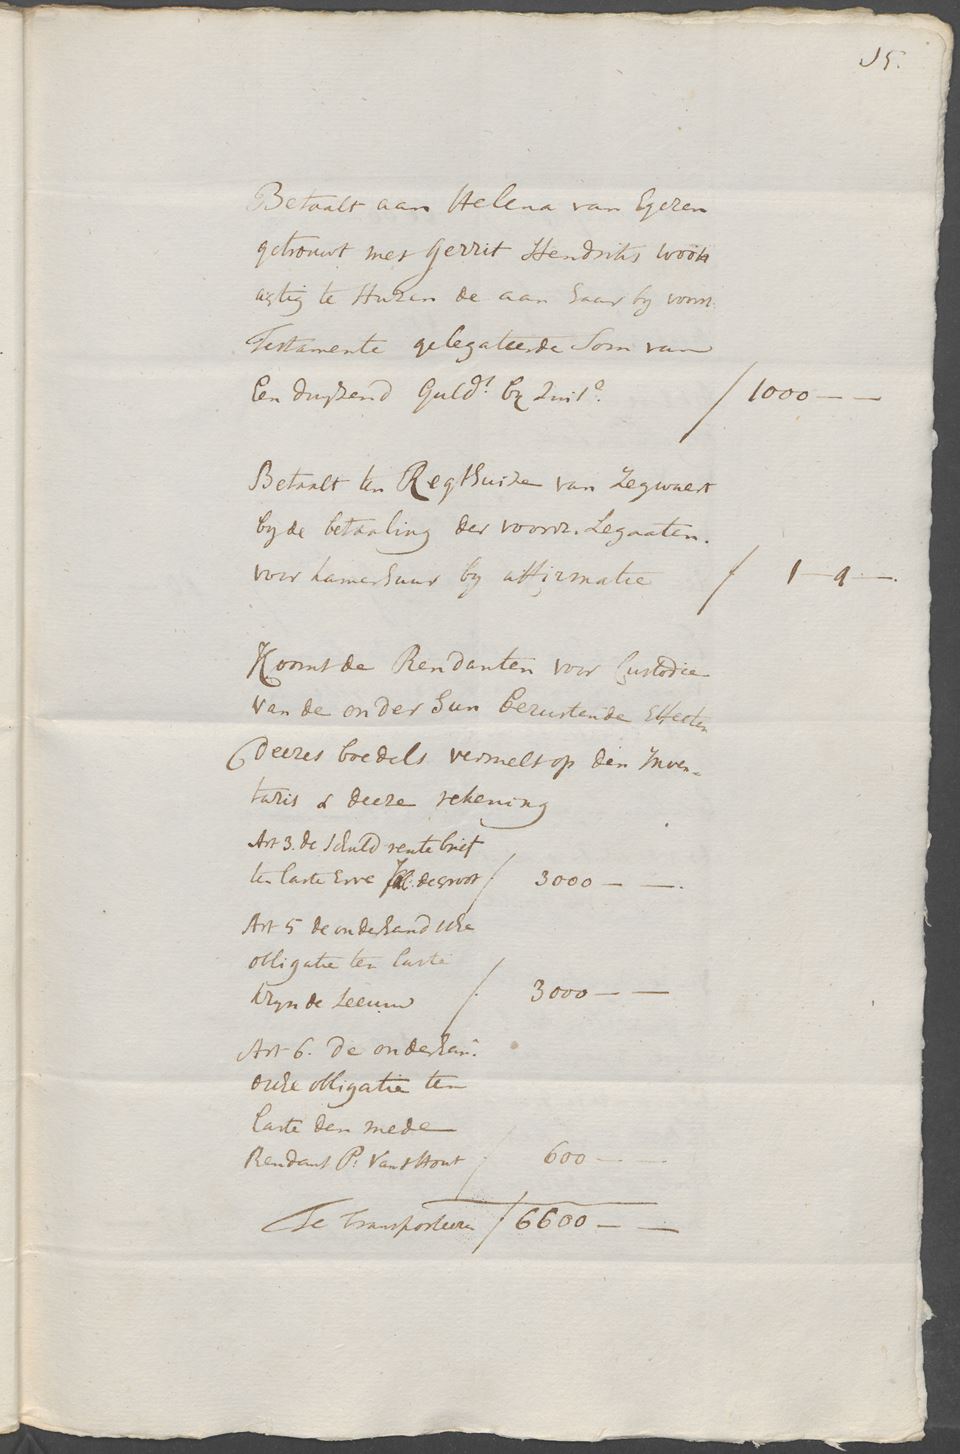 15.
Betaalt aan Helena van Egeren
getrouwt met Gerrit Hendriks woon
agtig te Huzen de aan haar by voorn.
Testamente gelegateerde Som van
Een duyzend Guld.s by quit.e / 1000 — —
Betaalt ten Regthuize van Zegwaert
by de betaaling der voorn. Legaaten.
voor kamerhuur by affirmatie / 1 — 9 —.
Komt de Rendanten voor Custodie
van de onder hun berustende Effecten
deezes boedels vermelt op den Inven-
taris & deeze rekening
Art 3. de schuld rentebrief
ten laste Erve de Groot / 3000 — —.
Art 5 de onderhandsche
obligatie ten laste
Kryn de Leeuw / 3000 — —
Art 6. de onderhan-
dsche obligatie ten
laste den mede
Rendant P. Van t Hout / 600 — —
Te transporteeren / 6600 — —